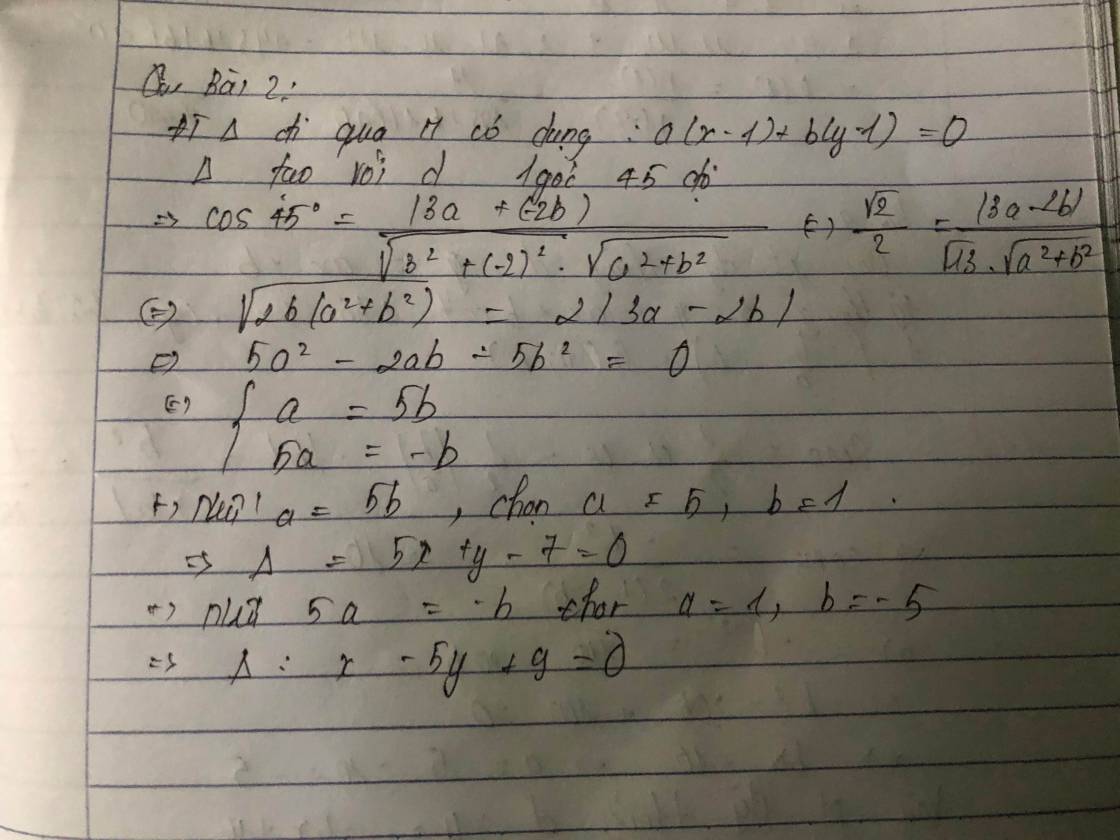 Bài 2:
ĐT Δ đi qua M có dạng : a(x-1) + b(y-1) = 0
Δ tạo với d 1 góc 45 độ
=> cos 45° = |3a + (-2b)| / √3² + (-2)² . √a² + b² (=) √2 / 2 = |3a - 2b| / √13 . √a² + b²
(=) √2b(a² + b²) = 2|3a - 2b|
(=) 5a² - 2ab - 5b² = 0
(=) { a = 5b
5a = -b
+) Nếu a = 5b , chọn a = 5, b = 1 .
=> Δ = 5x + y - 7 = 0
+) Nếu 5a = -b chọn a = 1, b = -5
=> Δ : x - 5y + 9 = 0